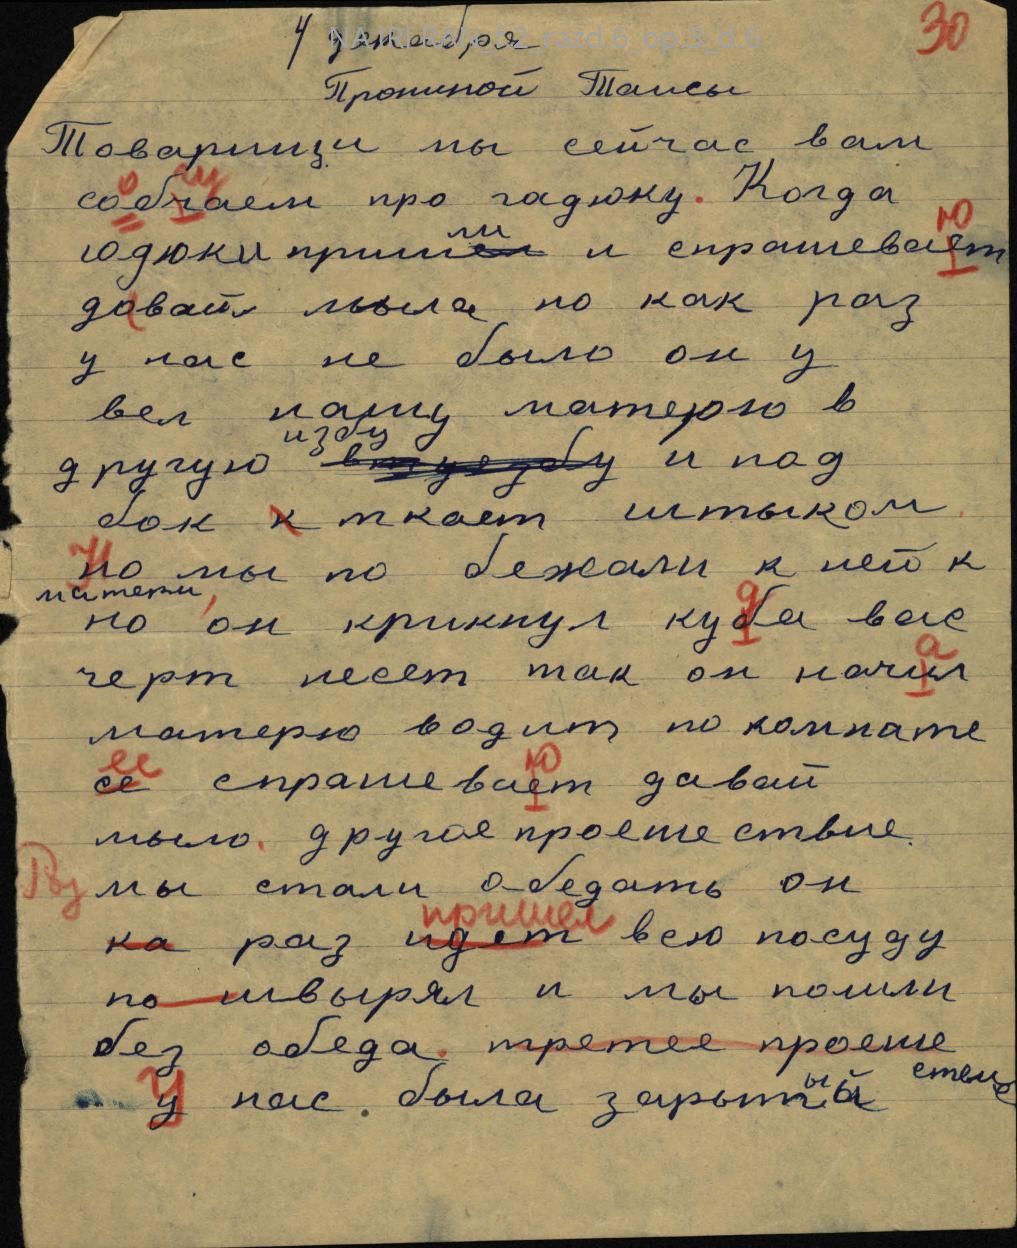 4 декабря
30
Прониной Таисы
Товарищи мы сейчас вам
о щ
собчаем про гадюку. Когда
ю
юдюки пришли и спрашевает
давай мыла но как раз
у нас не было он у
вел нашу матерю в
другую избу и под
бок к ткает штыком.
Но мы по бежали к ней к
матери, д
но он крикнул куба вас
а
черт несет так он начил
матерю водит по комнате
ее ю
се спрашевает давай
мыло. другое проеше ствие.
Раз мы стали обедать он
пришел
ка раз идет всю посуду
по швырял и мы пошли
без обеда. третее проеше
ствие
У нас была зарытый